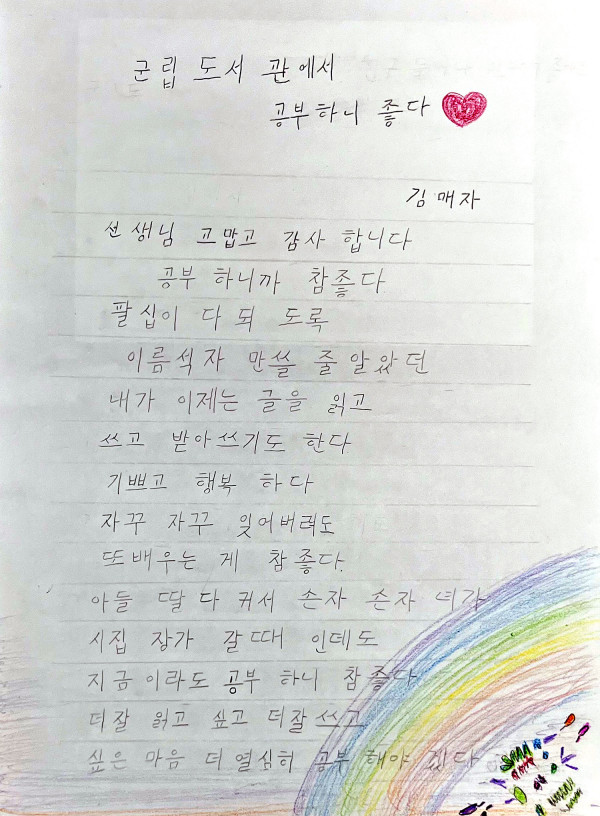 군립 도서 관에서
공부하니 좋다
김매자
선생님 고맙고 감사 합니다
공부 하니까 참좋다
팔십이 다되 도록
이름석자 만쓸 줄알았던
내가 이제는 글을 읽고
쓰고 받아쓰기도 한다
기쁘고 행복 하다
자꾸 자꾸 잊어버려도
또배우는 게 참좋다.
아들 딸다 커서 손자 손자 녀가
시집 장가 갈때 인데도
지금이라도 공부 하니 참좋다
더잘 읽고 싶고 더잘쓰고
싶은 마음 더열심히 공부 해야 겠다